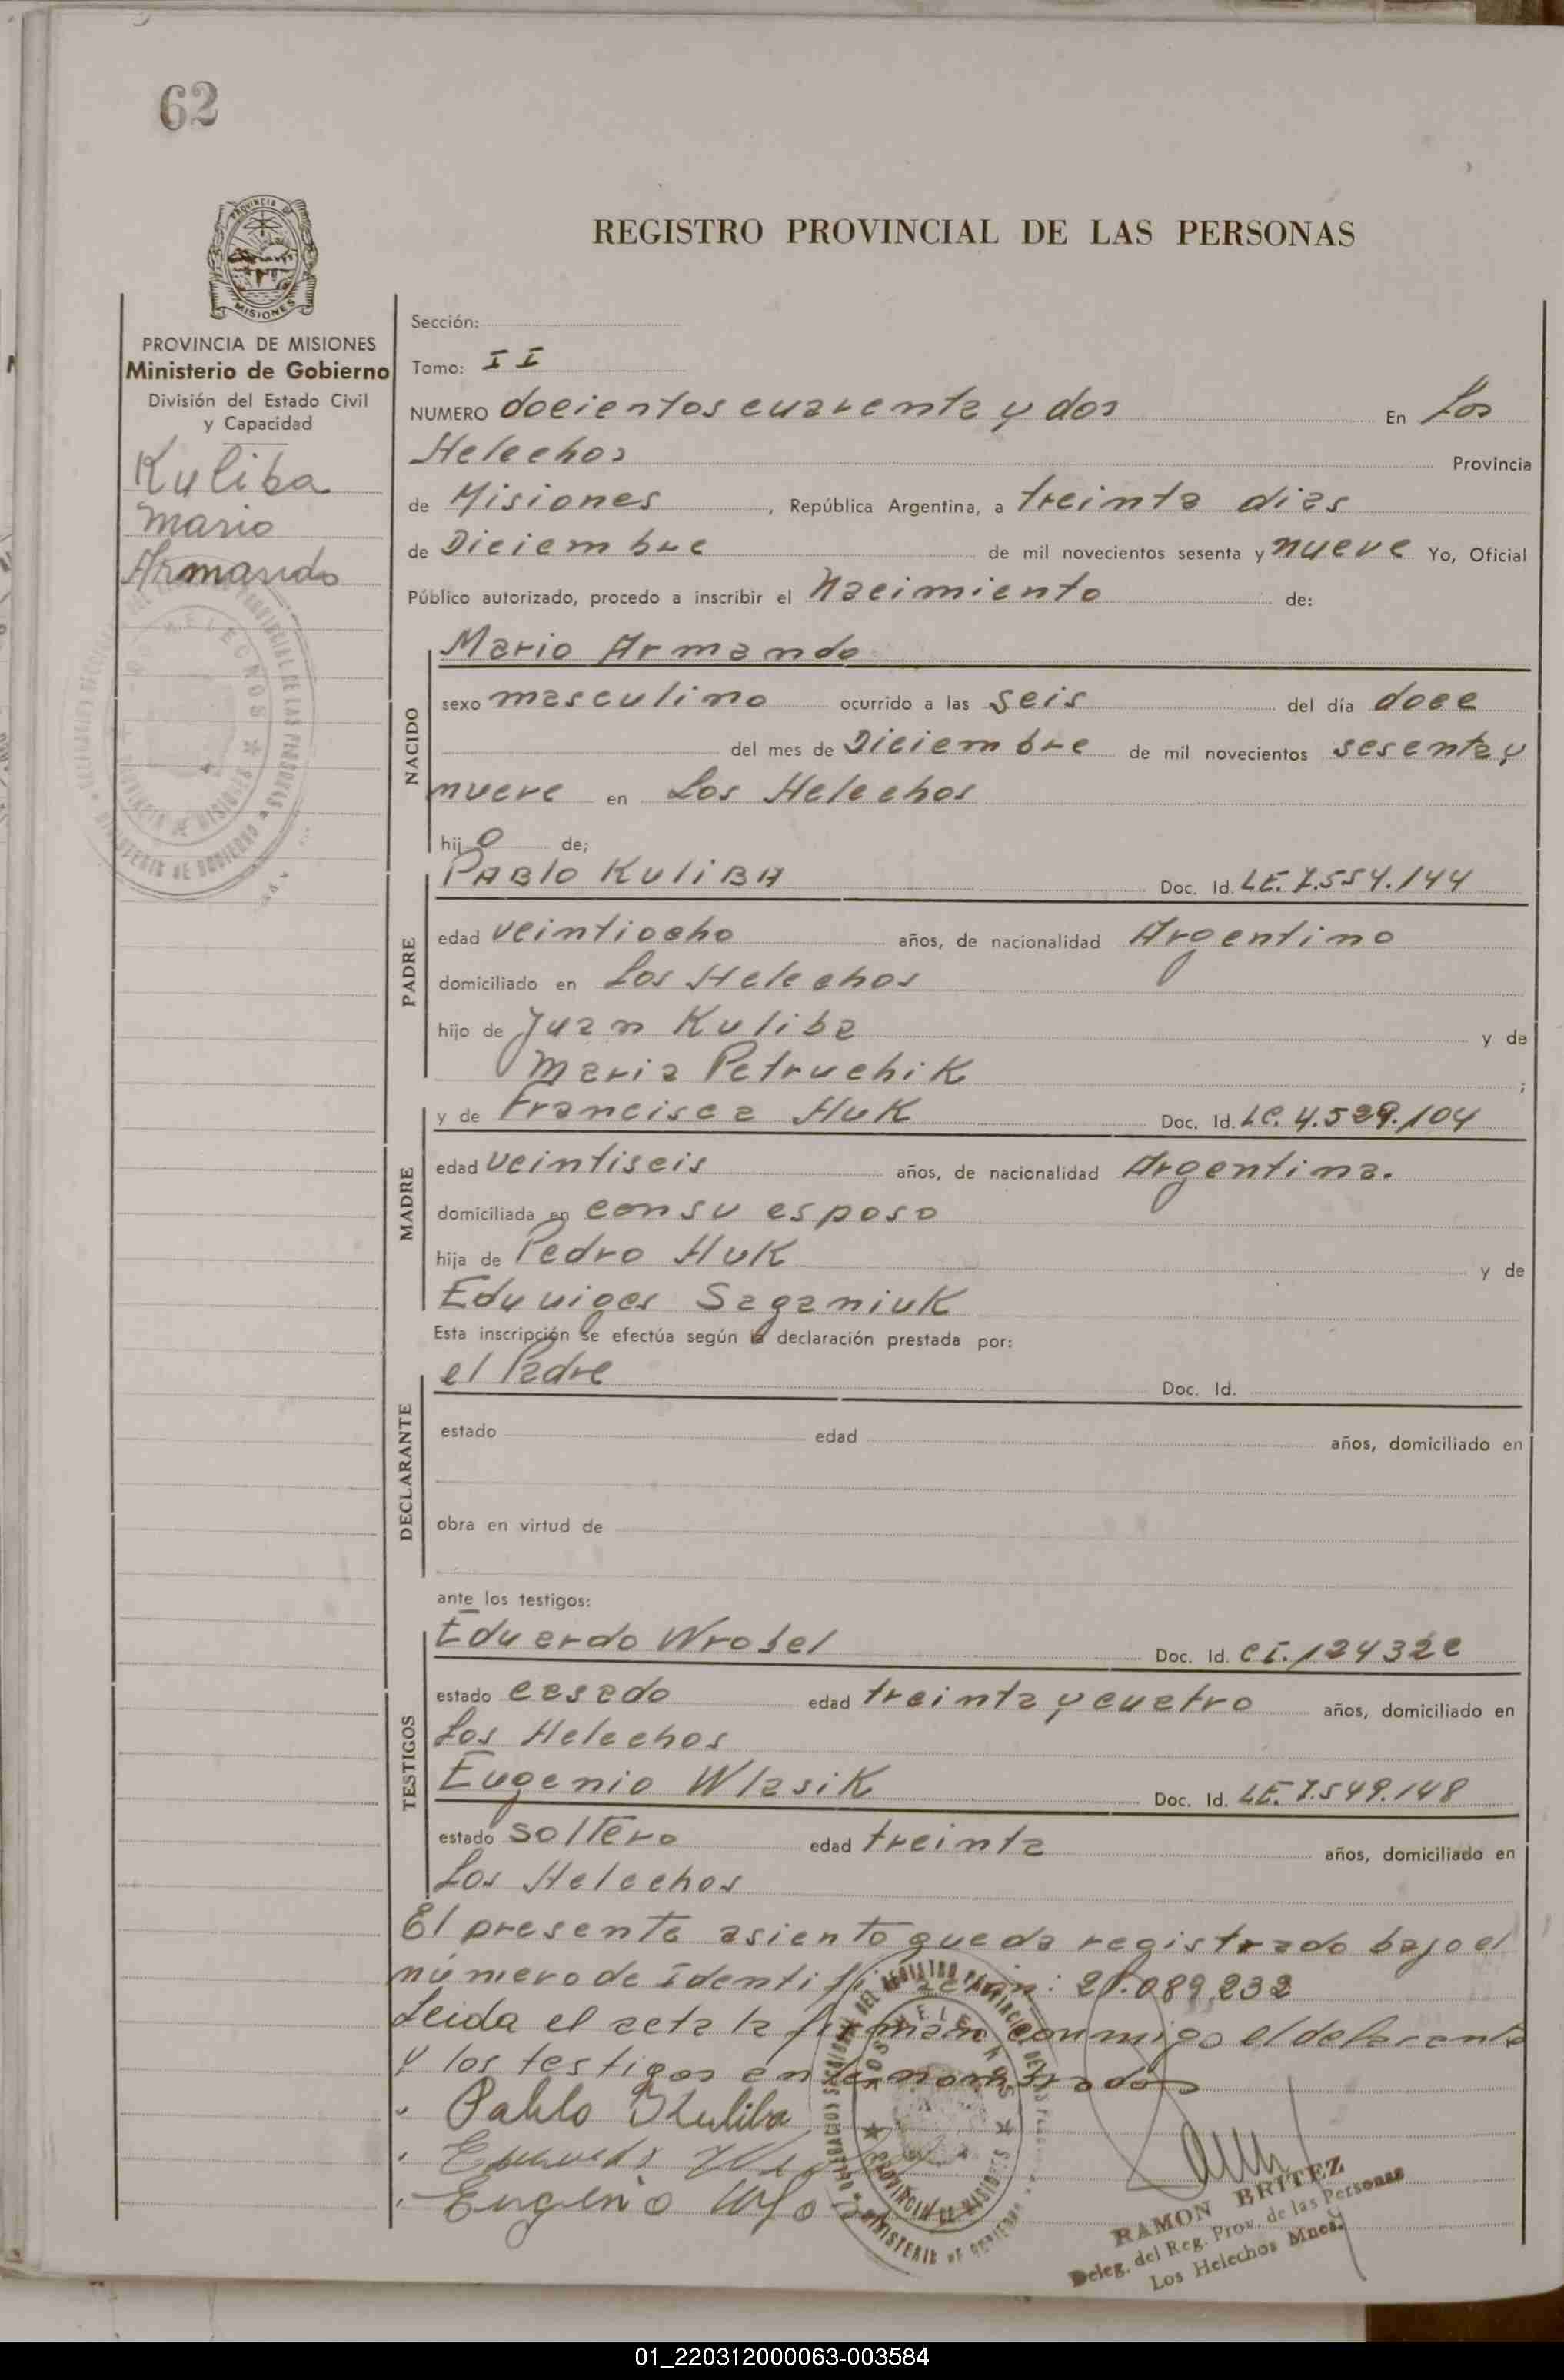 62
REGISTRO PROVINCIAL DE LAS PERSONAS
PROVINCIA DE MISIONES
Ministerio de Gobierno
División del Estado Civil
y Capacidad
Kuliba
Mario
Armando
Sección:
Tomo: II
NUMERO docientos cuarenta y dos En Los
Helechos Provincia
de Misiones, República Argentina, a treinta dias
de Diciembre de mil novecientos sesenta y nueve Yo, Oficial
Público autorizado, procedo a inscribir el Nacimiento de:
NACIDO
Mario Armando
sexo masculino ocurrido a las seis del día doce
del mes de Diciembre de mil novecientos sesenta y
nueve en Los Helechos
hijo de;
PADRE
PABlO KuliBA Doc. Id. LE. 7.554.144
edad veintiocho años, de nacionalidad Argentino
domiciliado en Los Helechos
hijo de Juan Kuliba y de
Maria Petruchik ;
MADRE
y de Francisca Huk Doc. Id. LC. 4.529.104
edad veintiseis años, de nacionalidad Argentina.
domiciliada en con su esposo
hija de Pedro Huk y de
Eduviges Saganiuk
Esta inscripción se efectúa según la declaración prestada por:
DECLARANTE
el Padre Doc. Id.
estado edad años, domiciliado en
obra en virtud de
ante los testigos:
TESTIGOS
Eduardo Wrobel Doc. Id. CI. 124322
estado casado edad treinta y cuatro años, domiciliado en
Los Helechos
Eugenio Wlasik Doc. Id. LE. 7.549.148
estado soltero edad treinta años, domiciliado en
Los Helechos
El presente asiento queda registrado bajo el
número de Identificación: 21.089.232
Leida el acta la firman conmigo el declarante
y los testigos en nombrados
Pablo Kuliba
Eugenio
RAMON BRITEZ
Deleg. del Reg. Prov. de las Personas
Los Helechos Mnes.
01_220312000063-003584